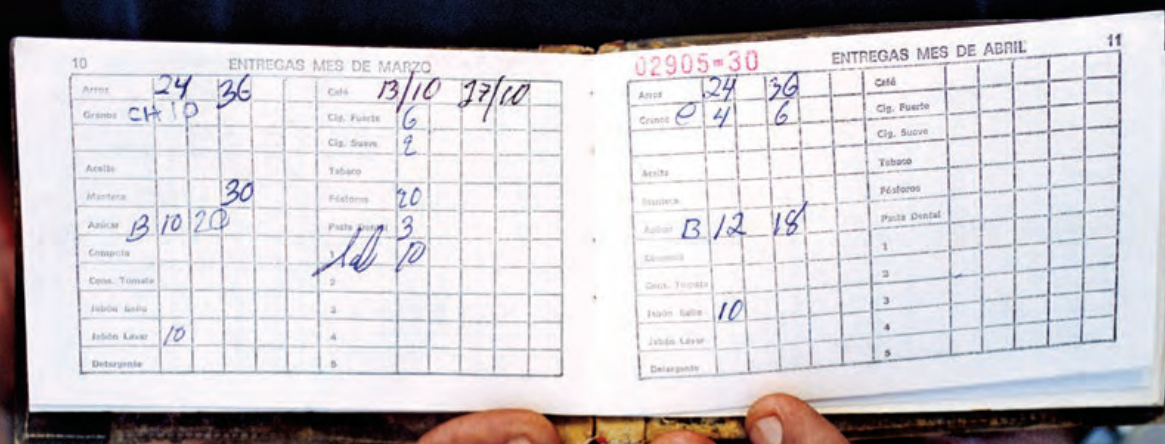 10 ENTREGAS MES DE MARZO
Arroz 24 36
Granos CH 10
Aceite
Manteca 30
Azúcar B 10 20
Compota
Cons. Tomate
Jabón Baño
Jabón Lavar 10
Detergente
Café 13/10 17/10
Cig. Fuerte 6
Cig. Suave 2
Tabaco
Fósforos 20
Pasta Dental 3
1 Sal 10
2
3
4
5
02905-30 ENTREGAS MES DE ABRIL 11
Arroz 24 36
Granos 4 6
Aceite
Manteca
Azúcar B 12 18
Compota
Cons. Tomate
Jabón Baño 10
Jabón Lavar
Detergente
Café
Cig. Fuerte
Cig. Suave
Tabaco
Fósforos
Pasta Dental
1
2
3
4
5